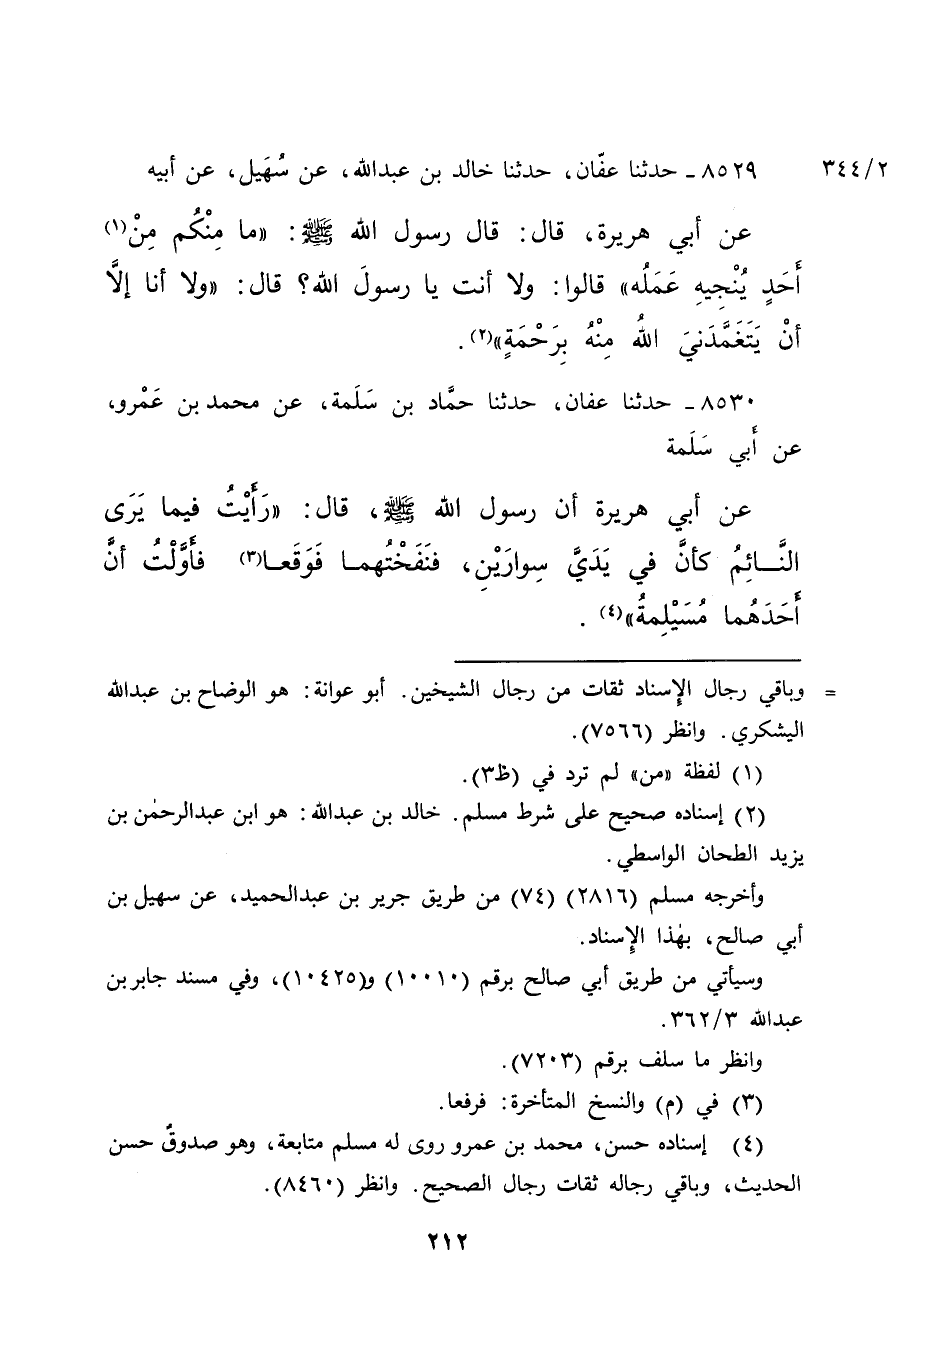 ٣٤٤/٢ ٨٥٢٩ ـ حدثنا عفّان، حدثنا خالد بن عبدالله، عن سُهَيل، عن أبيه
عن أبي هريرة، قال: قال رسول الله ﷺ: «ما مِنْكُم مِنْ(١)
أَحَدٍ يُنْجِيهِ عَمَلُه» قالوا: ولا أنت يا رسولَ الله؟ قال: «ولا أنا إلَّا
أنْ يَتَغَمَّدَنيَ اللهُ مِنْهُ بِرَحْمَةٍ»(٢).
٨٥٣٠ ـ حدثنا عفان، حدثنا حمَّاد بن سَلَمة، عن محمد بن عَمْرو،
عن أَبي سَلَمة
عن أبي هريرة أن رسول الله ﷺ، قال: «رَأَيْتُ فيما يَرَى
النَّـائِمُ كأنَّ في يَدَيَّ سِوارَيْنِ، فنَفَخْتُهمـا فَوَقَعـا(٣) فأَوَّلْتُ أنَّ
أَحَدَهُما مُسَيْلِمةُ»(٤).
= وباقي رجال الإسناد ثقات من رجال الشيخين. أبو عوانة: هو الوضاح بن عبدالله
اليشكري. وانظر (٧٥٦٦).
(١) لفظة «من» لم ترد في (ظ٣).
(٢) إسناده صحيح على شرط مسلم. خالد بن عبدالله: هو ابن عبدالرحمٰن بن
يزيد الطحان الواسطي.
وأخرجه مسلم (٢٨١٦) (٧٤) من طريق جرير بن عبدالحميد، عن سهيل بن
أبي صالح، بهٰذا الإسناد.
وسيأتي من طريق أبي صالح برقم (١٠٠١٠) و(١٠٤٢٥)، وفي مسند جابر بن
عبدالله ٣٦٢/٣.
وانظر ما سلف برقم (٧٢٠٣).
(٣) في (م) والنسخ المتأخرة: فرفعا.
(٤) إسناده حسن، محمد بن عمرو روى له مسلم متابعة، وهو صدوقٌ حسن
الحديث، وباقي رجاله ثقات رجال الصحيح. وانظر (٨٤٦٠).
٢١٢